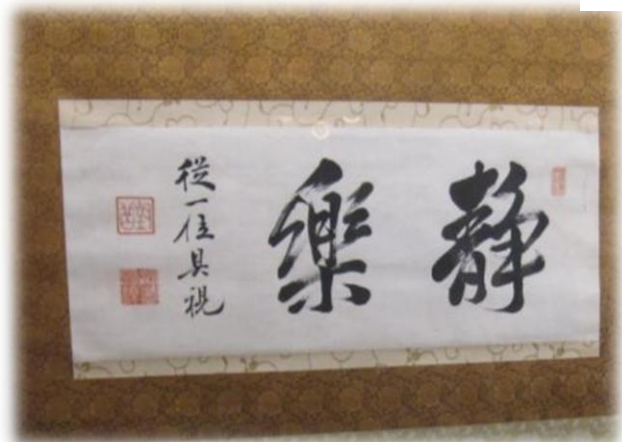 静樂
從一位具視